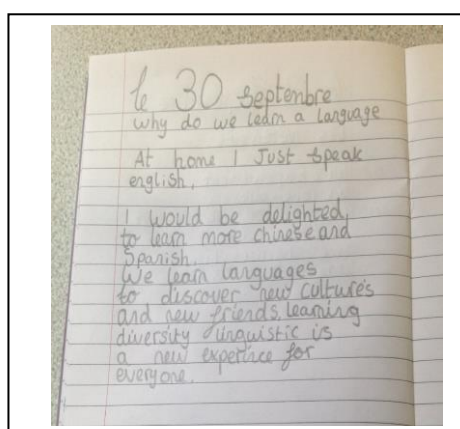 le 30 Septenbre
why do we learn a language
At home I Just speak
english,
I would be delighted,
to learn more chinese and
Spanish.
We learn languages
to discover new culture's
and new friends, learning
diversity linguistic is
a new experince for
everyone.